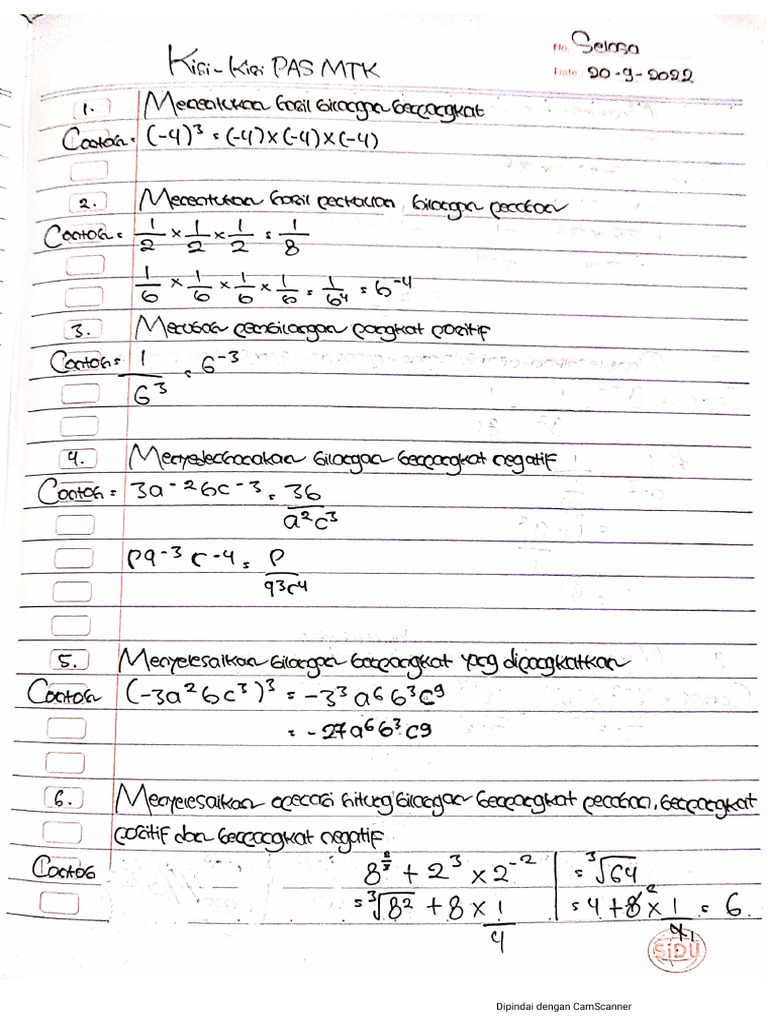 No. Selasa
Kisi-Kisi PAS MTK
Date 20-9-2022
1. Menentukan hasil bilangan berpangkat
Contoh: (-4)³ = (-4) × (-4) × (-4)
2. Menentukan hasil perkalian bilangan pecahan
Contoh = 1/2 × 1/2 × 1/2 = 1/8
1/6 × 1/6 × 1/6 × 1/6 = 1/6⁴ = 6⁻⁴
3. Merubah perbilangan pangkat positif
Contoh = 1/6³ = 6⁻³
4. Menyederhanakan bilangan berpangkat negatif
Contoh = 3a⁻²bc⁻³ = 3b/a²c³
pq⁻³r⁻⁴ = p/q³r⁴
5. Menyelesaikan bilangan berpangkat yang dipangkatkan
Contoh (-3a²bc³)³ = -3³a⁶b³c⁹
= -27a⁶b³c⁹
6. Menyelesaikan operasi hitung bilangan berpangkat pecahan, berpangkat
positif dan berpangkat negatif
Contoh 8^(2/3) + 2³ × 2⁻² = ³√64
= ³√8² + 8 × 1/4 = 4 + 8² × 1/4₁ = 6
SIDU
Dipindai dengan CamScanner